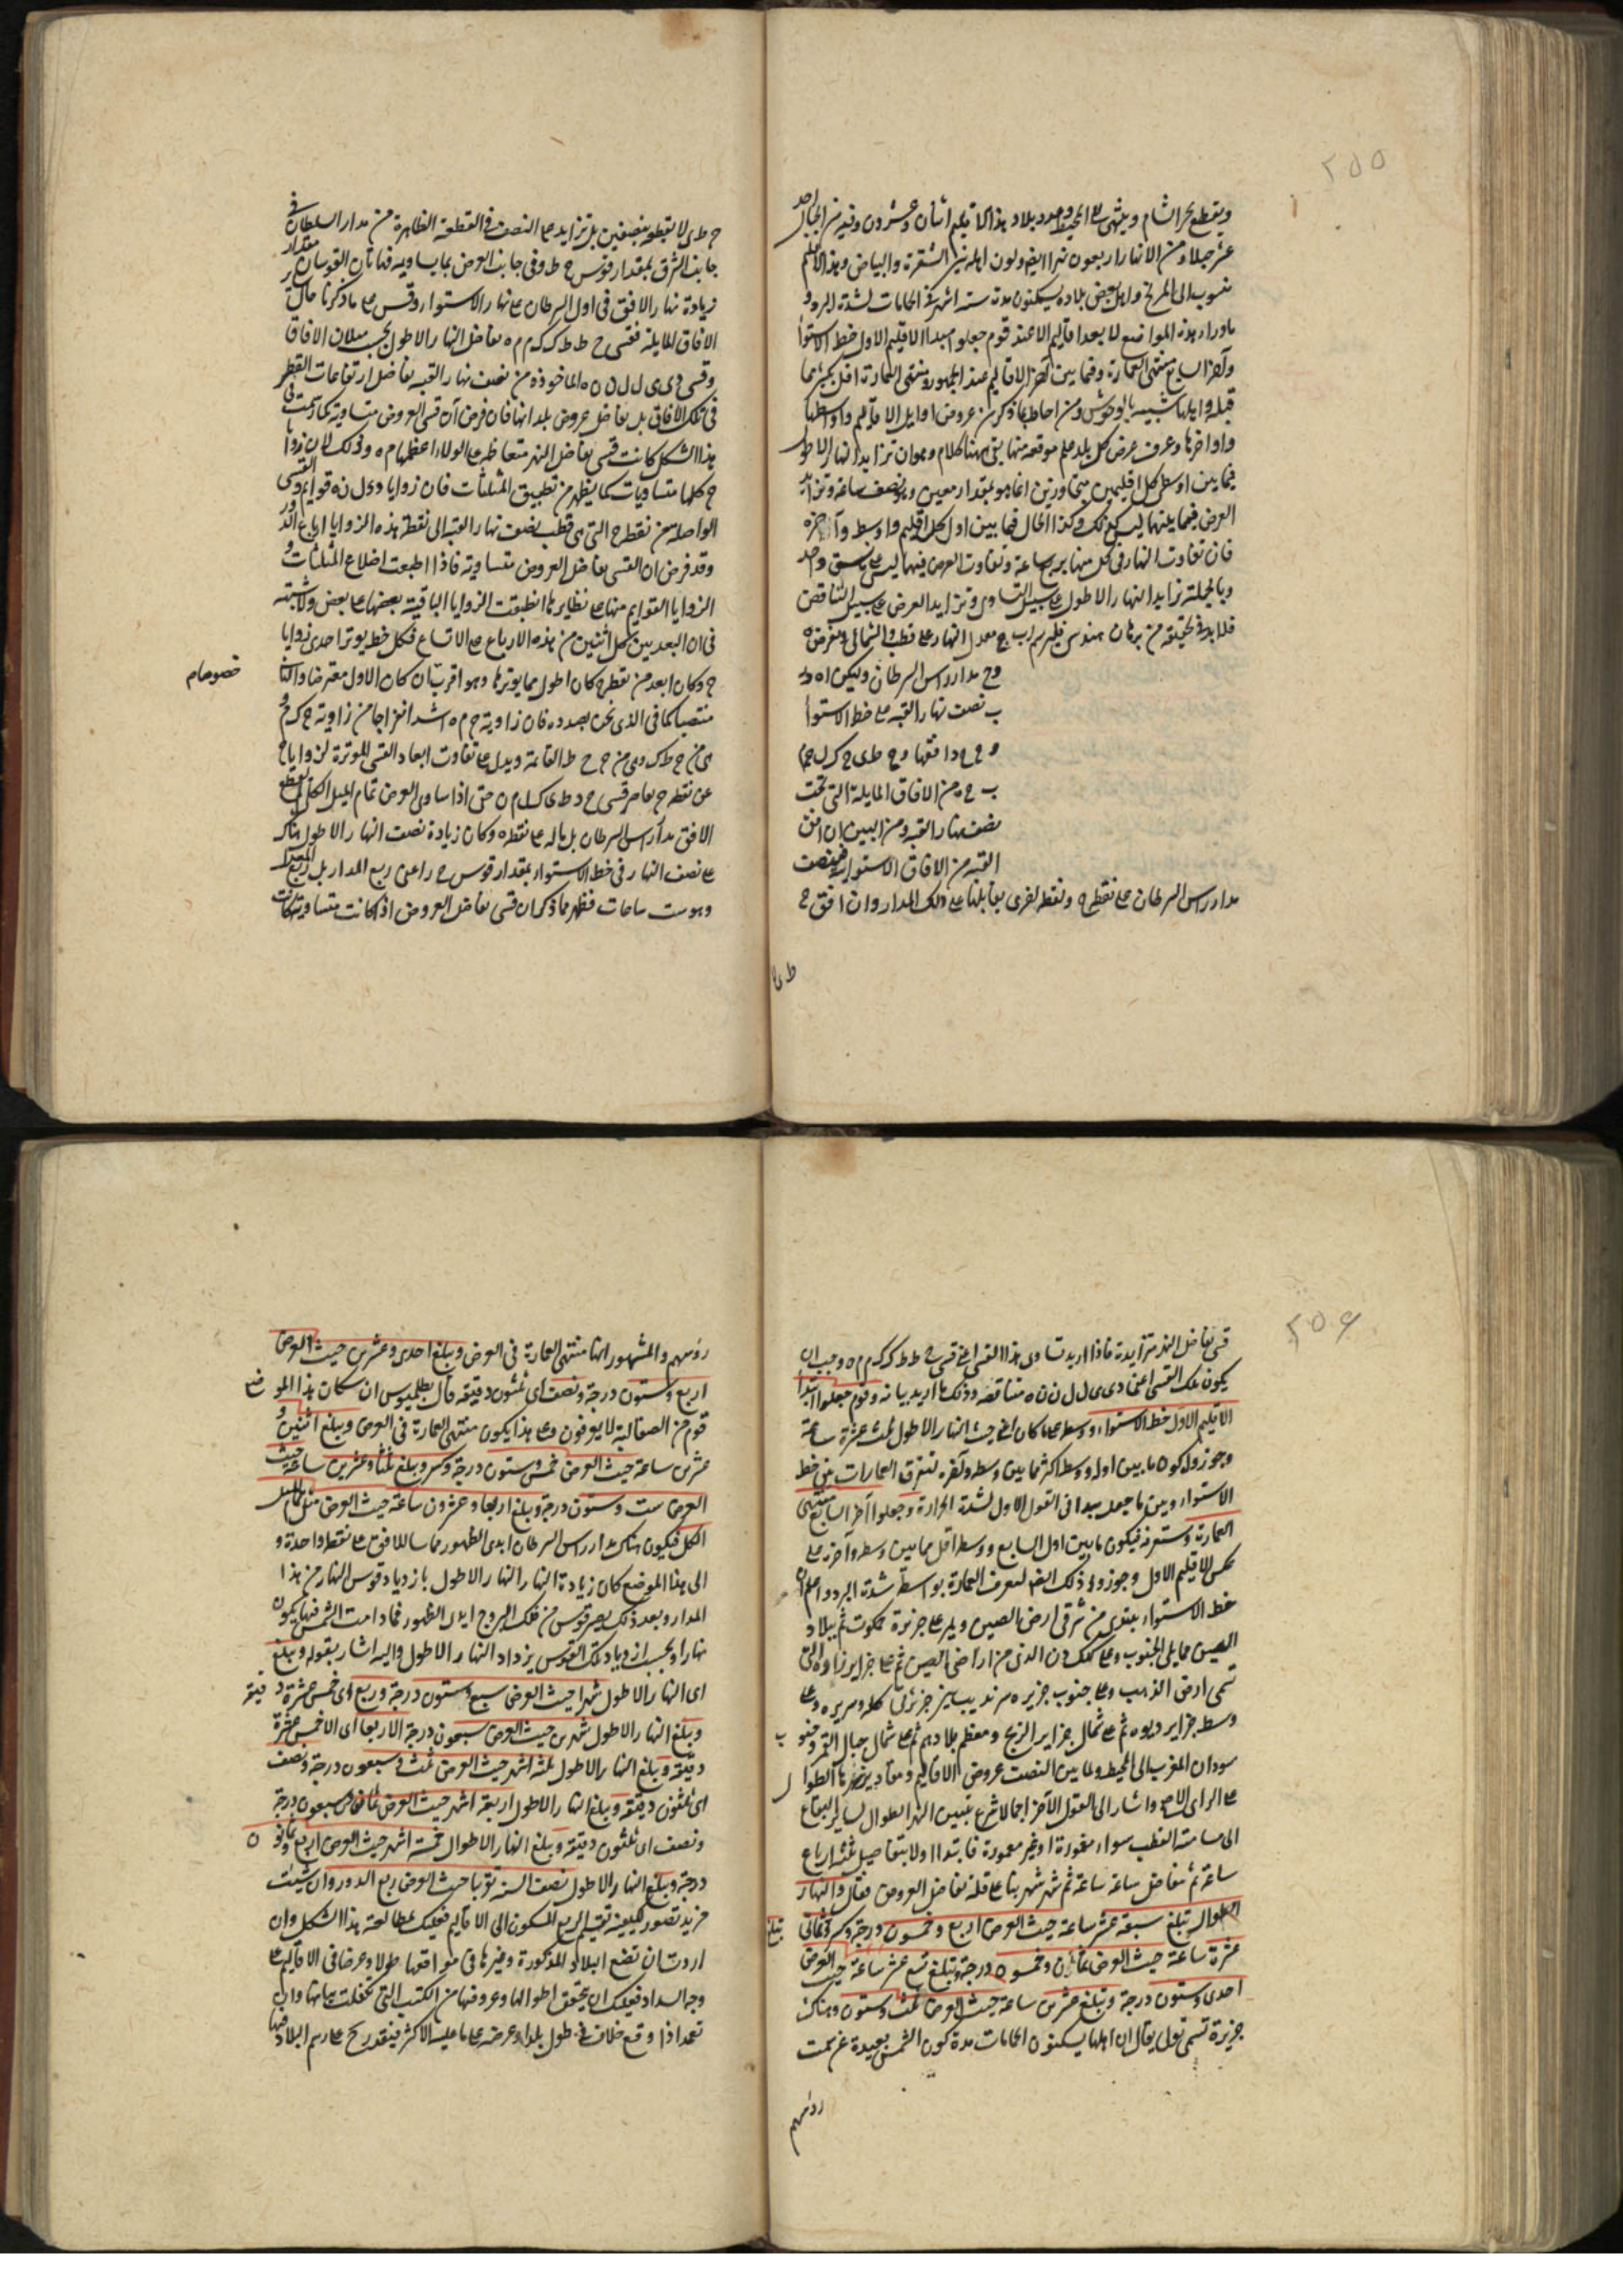 ٢٥٥
ويقطع بحر الشام وينتهى الى المحيط وعدد بلاد هذا الاقليم اثنان وعشرون وفيه من الجبال احد
عشر جبلا ومن الانهار اربعون نهرا ايضا ولون اهله بين الشقرة والبياض وهذا الاقليم
منسوب الى المريخ واهل بعض بلاده يسكنون مدة ستة اشهر فى الحمامات لشدة البرد و
ماوراء هذه المواضع لا يعد اقاليم الا عند قوم جعلوا مبدأ الاقليم الاول خط الاستواء
وآخر السابع منتهى العمارة وفيما بين آخر الاقاليم عند الجمهور ومنتهى العمارة
قبله واهلها شبيه بالوحوش ومن احاط بما ذكر من عروض اوايل الاقاليم واواسطها
واواخرها وعرف عرض كل بلد علم موقعه منها بقى ههنا كلام وهو ان تزايد النهار الاطول
فيما بين اوسطى كل اقليمين متجاورين انما هو بمقدار معين وهو نصف ساعة وتزايد
العرض فيما بينهما ليس كذلك وكذا الحال فيما بين اول كل اقليم واوسطه وآخره
فان تفاوت النهار فى كل منها بربع ساعة وتفاوت العرض فيهما ليس على نسق واحد
وبالجملة تزايد النهار الاطول على سبيل التساوى وتزايد العرض على سبيل التناقص
فلا بد فى تحقيقه من برهان هندسى فليرسم اب ج معدل النهار على قطب و الشمالى ونفرض ه
وح مدار راس السرطان وليكن اه
ب نصف نهار القبة على خط الاستوا
و ح دافقها و ح طى ح كل حم
ب ح من الافاق المايلة التى تحت
نصف نهار القبة ومن البين ان افق
القبة من الافاق الاستوائية فينصف
مدار راس السرطان على نقطة ه ونقطة اخرى يقابلها على ذلك المدار وان افق ح
ط ى
ح طى لا يقطعه بنصفين بل تزايد على النصف فى القطعة الظاهرة من مدار السرطان فى
جانب الشرق بمقدار قوس ح ط وفى جانب الغرض بما يساويه فهاتان القوسان مقدار
زيادة نهار الافق فى اول السرطان على نهار الاستوا وقس على ما ذكرنا حال
الافاق المايلة فقسى ح ط ط ك ك م م ه تفاضل النهار الاطول بحسب ميلان الافاق
وقسى د ى ى ل ل ن ن ه الماخوذة من نصف نهار القبة تفاضل ارتفاعات القطب
فى تلك الافاق بل تفاضل عروض بلدانها فان فرض ان قسى العروض متساوية كما رسمت فى
هذا الشكل كانت قسى تفاضل النهر متعاظمة على الولاء اعظمها م ه وذلك لان زوايا
ح كلها متساويات كما يظهر من تطبيق المثلثات فان زوايا د ى ل ن ه قوايم وهى القسى
الواصلة من نقطة ح التى هى قطب نصف نهار القبة الى نقطة هذه الزوايا ارباع الدور
وقد فرض ان القسى تفاضل العروض متساوية فاذا اطبقت اضلاع المثلثات و
الزوايا القوايم منها على نظايرها انطبقت الزوايا الباقية بعضها على بعض ولا شبهة
فى ان البعد بين كل اثنين من هذه الارباع على الاتساع فكل خط يوتر احدى زوايا
ح وكان ابعد من نقطة ح كان اطول مما يوترها وهو اقرب ان كان الاول معترضا والثانى
خصوصا م
منتصبا كما فى الذى نحن بصدده فان زاوية ح م ه اشد انفراجا من زاوية ح ك م
ى من ح ط ك وهى من ح ح ط القائمة ويدل على تفاوت ابعاد القسى الموترة لزوايا ح
عن نقطة ح تقاصر قسى ح د ط ى ك ل م ن حتى اذا ساوى العرض تمام الميل الكلى لم يقطع
الافق مدار راس السرطان بل ماسه على نقطة ه وكان زيادة نصف النهار الاطول هناك
على نصف النهار فى خط الاستواء بمقدار قوس ح ر اعنى ربع المدار بل ربع المعدل
وهو ست ساعات فظهر مما ذكر ان قسى تفاضل العروض اذا كانت متساوية كانت
٢٥٦
قسى تفاضل النهر متزايدة فاذا اريد تساوى هذا القسى اعنى قسى ح ط ط ك ك م م ه وجب ان
يكون تلك القسى اعنى د ى ى ل ل ن ن ه متناقصة وذلك ما اريد بيانه وقوم جعلوا ابتداء
الاقليم الاول خط الاستواء ووسطه على ما كان اعنى حيث النهار الاطول ثلث عشرة ساعة
وجوزوا كون ما بين اوله ووسطه اكثر مما بين وسطه وآخره لتفرق العمارات بين خط
الاستواء وبين ما جعل مبدا فى القول الاول لشدة الحرارة وجعلوا آخر السابع منتهى
العمارة وستعرفه فيكون ما بين اول السابع ووسطه اقل مما بين وسطه وآخره على
عكس الاقليم الاول وجوزوا ذلك ايضا لتفرق العمارة بواسطة شدة البرد واعلم ان
خط الاستواء يبتدى من شرقى ارض الصين ويمر على جزيرة جمكوت ثم ببلاد
الصين مما يلى الجنوب وعلى كنك دز الذى من اراضى الصين ثم على جزاير زاوه التى
تسمى ارض الذهب وعلى جنوب جزيره سرنديب بين جزيرتى كله وسريره وعلى
وسط جزاير ديوه ثم على شمال جزاير الزنج ومعظم بلادهم ثم على شمال جبال القمر وجنوب
سودان المغرب الى المحيط ولما بين المصنف عروض الاقاليم ومقادير نهرها الطوال
على الراى الاصح واشار الى القول الآخر اجمالا شرع يبين النهر الطوال لساير البقاع
الى مسامتة القطب سواء معمورة او غير معمورة فابتدا اولا بتفاصيل ثلثة ارباع
ساعة ثم تفاضل ساعة ساعة ثم شهر شهر بناء على قلة تفاضل العروض فقال والنهار
الطوال تبلغ سبعة عشر ساعة حيث العرض اربع وخمسون درجة وكسر وثمانى
تبلغ
عشرة ساعة حيث العرض ثمان وخمسون درجة وتبلغ تسع عشر ساعة حيث العرض
احدى وستون درجة وتبلغ عشرين ساعة حيث العرض ثلث وستون وهناك
جزيرة تسمى تولى يقال ان اهلها يسكنون الحمامات مدة كون الشمس بعيدة عن سمت
روسهم
روسهم والمشهور انها منتهى العمارة فى العرض ويبلغ احدى وعشرين حيث العرض
اربع وستون درجة ونصف اى ثلثون دقيقة قال بطلميوس ان سكان هذا الموضع
قوم من الصقالبة لا يعرفون وعلى هذا يكون منتهى العمارة فى العرض ويبلغ اثنين و
عشرين ساعة حيث العرض خمس وستون درجة وكسر ويبلغ ثلثا وعشرين ساعة حيث
العرض ست وستون درجة ويبلغ اربعا وعشرون ساعة حيث العرض مثل تمام الميل
الكلى فيكون هناك مدار راس السرطان ابدى الظهور مماسا للافق على نقطة واحدة و
الى هذا الموضع كان زيادة النهار النهار الاطول بازدياد قوس النهار من هذا
المدار وبعد ذلك يصير قوس من فلك البروج ابدى الظهور فمادامت الشمس فيها يكون
نهارا وبحسب ازدياد تلك القوس يزداد النهار الاطول واليه اشار بقوله ويبلغ
اى النهار الاطول شهرا حيث العرض سبع وستون درجة وربع اى خمس عشرة دقيقة
ويبلغ النهار الاطول شهرين حيث العرض سبعون درجة الا ربعا اى الا خمس عشرة
دقيقة ويبلغ النهار الاطول ثلثة اشهر حيث العرض ثلث وسبعون درجة ونصف
اى ثلثون دقيقة ويبلغ النهار الاطول اربعة اشهر حيث العرض ثمان وسبعون درجة
ونصف اى ثلثون دقيقة ويبلغ النهار الاطوال خمسة اشهر حيث العرض اربع وثمانون
درجة ويبلغ النهار الاطول نصف السنة تقريبا حيث العرض ربع الدور وان شئت
مزيد تصور لكيفية تقسيم الربع المسكون الى الاقاليم فعليك بمطالعة هذا الشكل وان
اردت ان تضع البلاد المذكورة وغيرها فى مواقعها طولا وعرضا فى الاقاليم على
وجه السداد فعليك ان يتحقق اطوالها وعروضها من الكتب التى تكفلت ببيانها وان
تعمد اذا وقع خلاف فى طول بلد او عرضه على ما عليه الاكثر فينقدح على رسم البلاد فيها